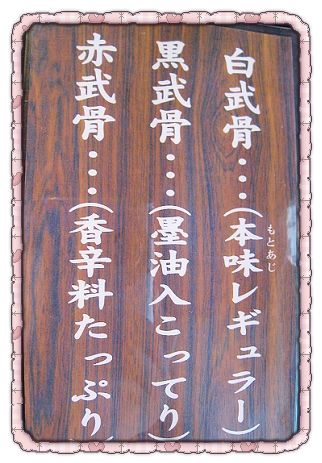 白武骨・・・(本味レギュラー)
もとあじ
黒武骨・・・(墨油入こってり)
赤武骨・・・(香辛料たっぷり)